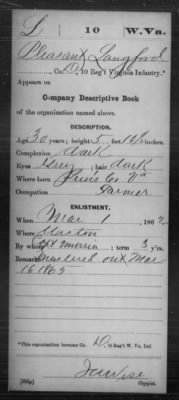 L | 10 | W.Va.
Pleasant Langford
, D, 10 Reg't Virginia Infantry.*
Appears on
Company Descriptive Book
of the organization named above.
DESCRIPTION.
Age 30 years; height 5 feet 10½ inches.
Complexion dark
Eyes Grey; hair dark
Where born Lewis Co Va
Occupation Farmer
ENLISTMENT.
When Mar 1, 186
Where Weston
By whom Morris; term 3 y'rs.
Remarks Mustered out Mar
16 1865
*This organization became Co. D, 10 Reg't W. Va. Inf.
Copyist.